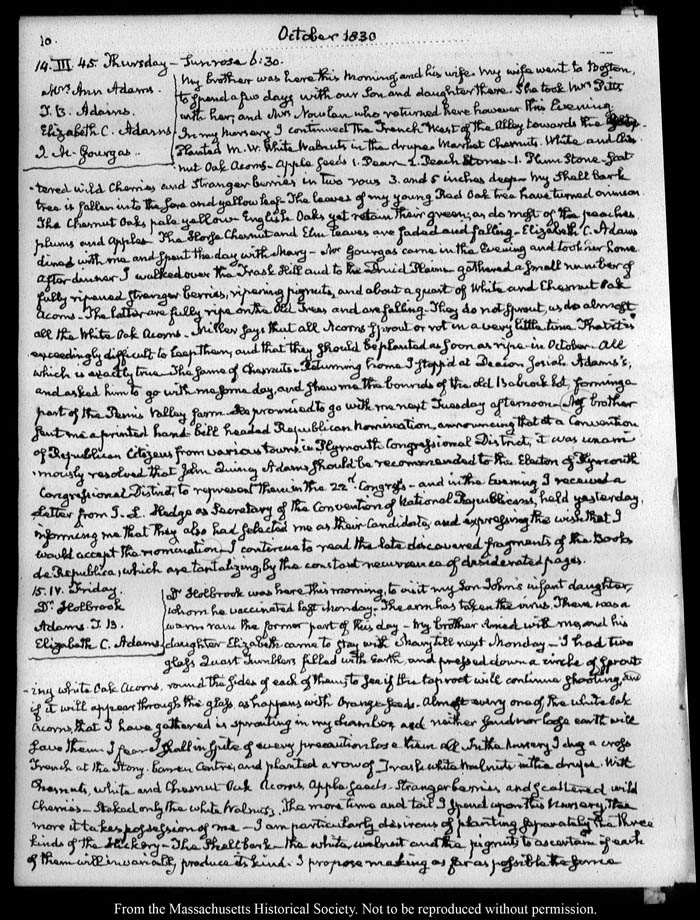 10.
October 1830
14. III. 45. Thursday - Sunrose 6:30.
Mrs Ann Adams.
T. B. Adams.
Elizabeth C. Adams
I. H. Gourgas.
My brother was here this Morning and his wife. My wife went to Boston,
to spend a few days with our Son and daughter there. She took Mrs Pitts
with her, and Mrs Nowlan who returned here however this Evening.
In my Nursery I continued the Trench West of the Alley towards the
Planted M. W. White Walnuts in the drupe Market Chesnuts. White and Ches-
nut Oak Acorns - Apple seeds 1. Pear 2. Peach Stones - 1. Plum Stone - Scat-
tered wild Cherries and Stranger berries in two rows 3. and 5 inches deep - My Shell bark
tree is fallen into the sere and yellow leaf - The leaves of my young Red Oak tree have turned crimson
The Chesnut Oaks pale yellow - English Oaks yet retain their green; as do most of the peaches
plums and apples - The Horse Chesnut and Elm leaves are faded and falling - Elizabeth C. Adams
dined with me and spent the day with Mary - Mr Gourgas came in the Evening and took her home
After dinner I walked over the Trask Hill and to the Druid Plains - gathered a small number of
fully ripened Stranger berries, ripening pignuts, and about a quart of White and Chesnut Oak
Acorns - The latter are fully ripe on the Old Trees and are falling - They do not sprout, as do almost
all the White Oak Acorns - Miller says that all Acorns sprout or rot in a very little time. That it is
exceedingly difficult to keep them, and that they should be planted as soon as ripe in October. All
which is exactly true - The same of Chesnuts - Returning home I stopp'd at Deacon Josiah Adams's,
and asked him to go with me some day, and shew me the bounds of the old Babcock lot, forming a
part of the Penns Valley farm - He promised to go with me next Tuesday afternoon. My brother
sent me a printed hand bill headed Republican Nomination, announcing that at a Convention
of Republican Citizens from various towns in Plymouth Congressional District, it was unani-
mously resolved that John Quincy Adams should be recommended to the Electors of Plymouth
Congressional District, to represent them in the 22d Congress - and in the Evening I received a
Letter from I. L. Hedge as Secretary of the Convention of National Republicans, held yesterday,
informing me that they also had selected me as their Candidate, and expressing the wish that I
would accept the nomination - I continue to read the late discovered fragments of the Books
de Republica, which are tantalizing, by the constant recurrence of desiderated pages.
15. IV. Friday.
Dr Holbrook
Adams. T. B.
Elizabeth C. Adams
Dr Holbrook was here this morning, to visit my Son John's infant daughter,
whom he vaccinated last Monday - The arm has taken the virus. There was a
warm rain the former part of this day - My brother dined with me, and his
daughter Elizabeth came to stay with Mary till next Monday - I had two
glass Quart Tumblers filled with Earth, and pressed down a circle of sprout-
ing white Oak Acorns, round the sides of each of them, to see if the taproot will continue shooting, and
if it will appear through the glass, as happens with Orange-seeds. Almost every one of the white Oak
Acorns, that I have gathered is sprouting in my chamber, and neither sand nor loose earth will
save them. I fear I shall in spite of every precaution lose them all. In the Nursery I dug a cross
Trench at the Stony-barren Centre, and planted a row of Trask white Walnuts in the drupe. With
Chesnuts, white and Chesnut Oak Acorns, Apple seeds - Stranger berries and scattered wild
Cherries - Staked only the white Walnuts. The more time and toil I spend upon this Nursery, the
more it takes possession of me - I am particularly desirous of planting separately the three
kinds of the Hickory - The Shell bark - the white walnut and the pignuts to ascertain if each
of them will invariably produce its kind. I propose making as far as possible the same
From the Massachusetts Historical Society. Not to be reproduced without permission.